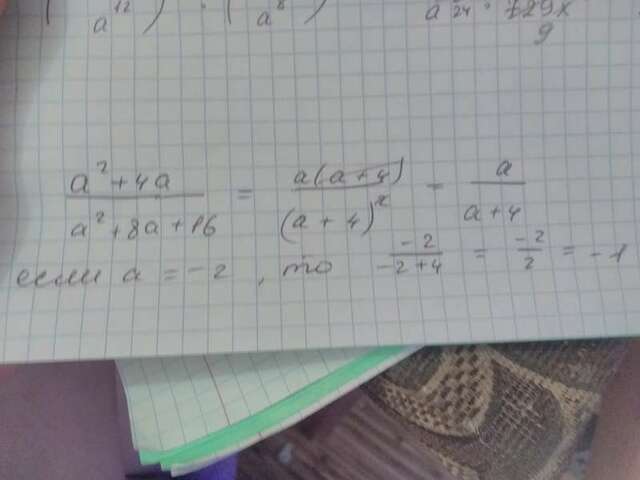 a^12 ) · ( a^8 ) a^24 · 729x
9
a²+4a / a²+8a+16 = a(a+4) / (a+4)² = a / a+4
если a = -2 , то -2 / -2+4 = -2 / 2 = -1